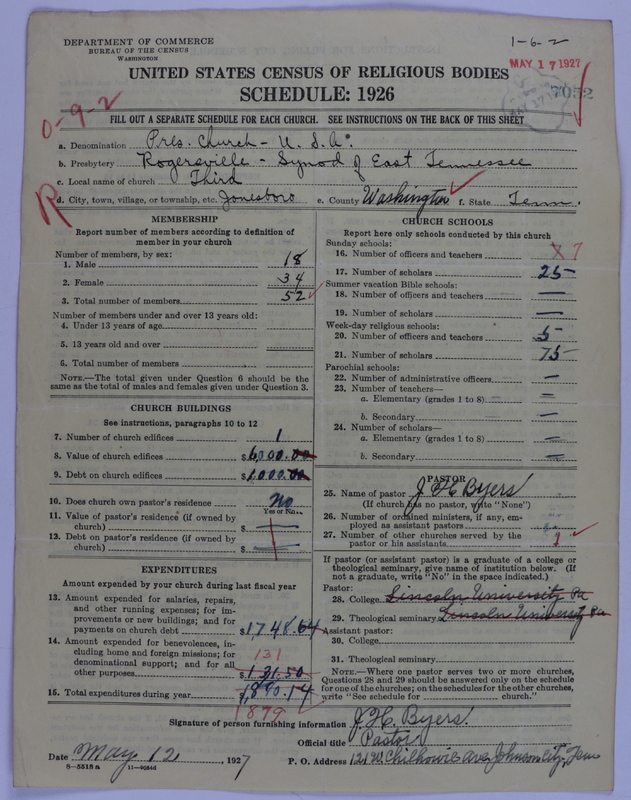 DEPARTMENT OF COMMERCE
BUREAU OF THE CENSUS
WASHINGTON
1-6-2
MAY 17 1927
UNITED STATES CENSUS OF RELIGIOUS BODIES
SCHEDULE: 1926
7052
0-9-2
FILL OUT A SEPARATE SCHEDULE FOR EACH CHURCH. SEE INSTRUCTIONS ON THE BACK OF THIS SHEET
a. Denomination Pres. Church - U.S.A.
b. Presbytery Rogersville - Synod of East Tennessee
c. Local name of church Third
R
d. City, town, village, or township, etc. Jonesboro e. County Washington f. State Tenn.
MEMBERSHIP
Report number of members according to definition of member in your church
Number of members, by sex:
1. Male 18
2. Female 34
3. Total number of members 52
Number of members under and over 13 years old:
4. Under 13 years of age
5. 13 years old and over
6. Total number of members
NOTE.—The total given under Question 6 should be the same as the total of males and females given under Question 3.
CHURCH BUILDINGS
See instructions, paragraphs 10 to 12
7. Number of church edifices 1
8. Value of church edifices $6,000.00
9. Debt on church edifices $1,000.00
10. Does church own pastor's residence No
Yes or No
11. Value of pastor's residence (if owned by church) $ —
12. Debt on pastor's residence (if owned by church) $ —
EXPENDITURES
Amount expended by your church during last fiscal year
13. Amount expended for salaries, repairs, and other running expenses; for improvements or new buildings; and for payments on church debt $1748.64
14. Amount expended for benevolences, including home and foreign missions; for denominational support; and for all other purposes $131.50
131
15. Total expenditures during year $1,880.14
1879
CHURCH SCHOOLS
Report here only schools conducted by this church
Sunday schools:
16. Number of officers and teachers 7
17. Number of scholars 25
Summer vacation Bible schools:
18. Number of officers and teachers —
19. Number of scholars —
Week-day religious schools:
20. Number of officers and teachers 5
21. Number of scholars 75
Parochial schools:
22. Number of administrative officers —
23. Number of teachers—
a. Elementary (grades 1 to 8) —
b. Secondary —
24. Number of scholars—
a. Elementary (grades 1 to 8) —
b. Secondary —
PASTOR
25. Name of pastor J. H. Byers
(If church has no pastor, write "None")
26. Number of ordained ministers, if any, employed as assistant pastors
27. Number of other churches served by the pastor or his assistants
If pastor (or assistant pastor) is a graduate of a college or theological seminary, give name of institution below. (If not a graduate, write "No" in the space indicated.)
Pastor:
28. College Lincoln University Pa
29. Theological seminary Lincoln University Pa
Assistant pastor:
30. College
31. Theological seminary
NOTE.—Where one pastor serves two or more churches, Questions 28 and 29 should be answered only on the schedule for one of the churches; on the schedules for the other churches, write "See schedule for church."
Signature of person furnishing information J. H. Byers
Official title Pastor
Date May 12, 1927 P. O. Address 121 W. Chilhowie Ave, Johnson City, Tenn
8-5518a 11-90544